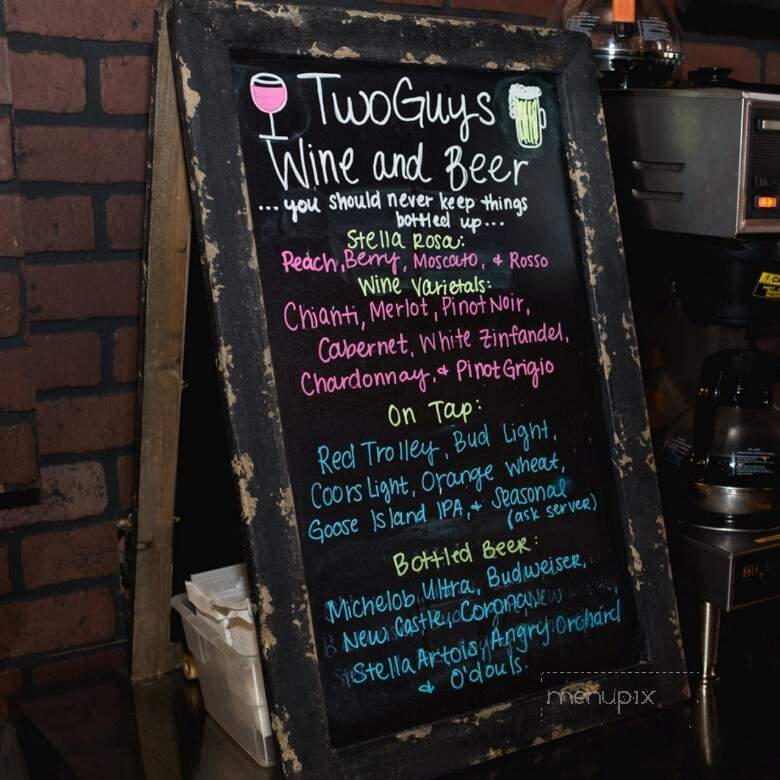 TwoGuys
Wine and Beer
...you should never keep things
bottled up...
Stella Rosa:
Peach, Berry, Moscato, & Rosso
Wine Varietals:
Chianti, Merlot, Pinot Noir,
Cabernet, White Zinfandel,
Chardonnay, & Pinot Grigio
On Tap:
Red Trolley, Bud Light,
Coors Light, Orange Wheat,
Goose Island IPA, & Seasonal
(ask server)
Bottled Beer:
Michelob Ultra, Budweiser,
New Castle, Corona,
Stella Artois, Angry Orchard
& O'douls.
menupix